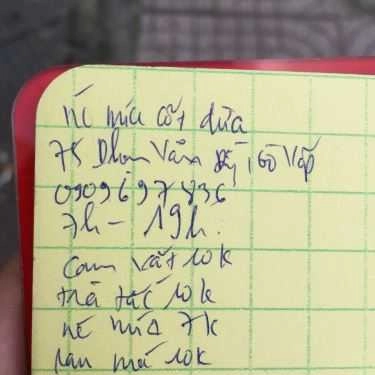 nc mía cốt dừa
75 Phan Văn, Gò Vấp
0909697836
7h - 19h.
cam vắt 10k
trà tắc 10k
nc mía 7k
rau má 10k